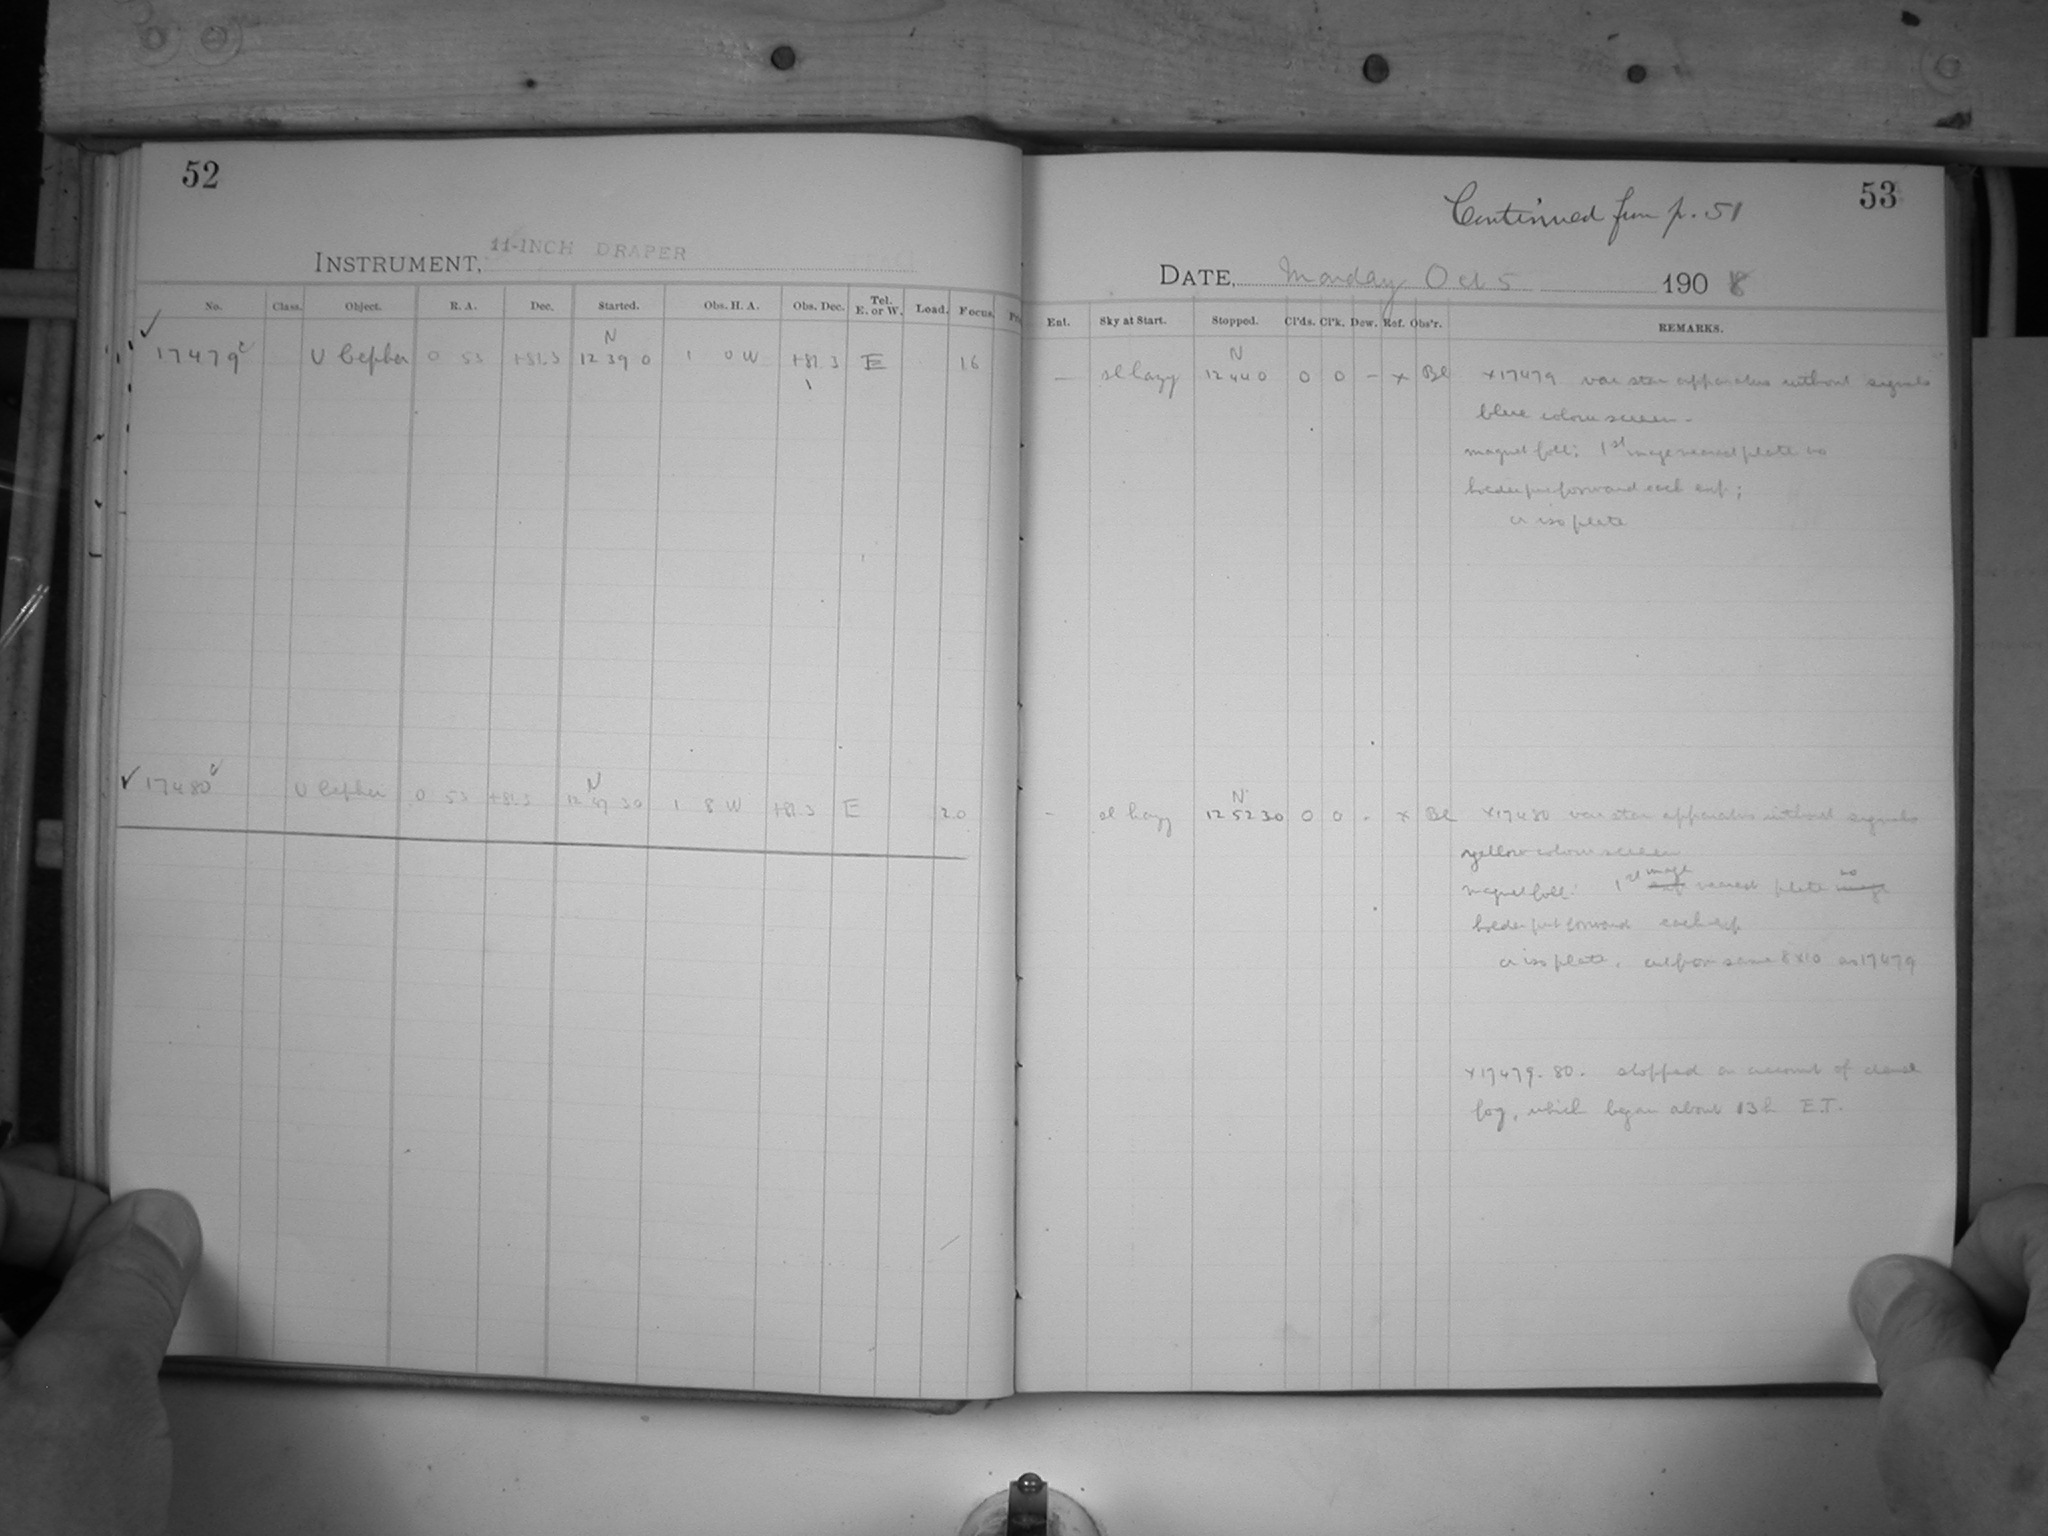 52
INSTRUMENT, 11-INCH DRAPER
No. Class. Object. R. A. Dec. Started. Obs. H. A. Obs. Dec. Tel. E. or W. Load. Focus.
N
17479 U Cephei 0 53 +81.3 12 39 0 1 0 W +81.3 E 16
N
17480 U Cephei 0 53 +81.3 12 47 30 1 8 W +81.3 E 20
53
Continued from p. 51
DATE, Monday Oct 5 1908
Ent. Sky at Start. Stopped. Cl'ds. Cl'k. Dew. Ref. Obs'r. REMARKS.
N
— sl hazy 12 44 0 0 0 - x Bl x17479 var star apparatus without signals
blue colour screen -
magnet foll: 1st image nearest plate no
holder put forward each exp;
cr iso plate
N
- sl hazy 12 52 30 0 0 - x Bl x17480 var star apparatus without signals
yellow colour screen
image no
magnet foll: 1st nearest plate
holder put forward each exp
cr iso plate. cut from same 8x10 as 17479
x17479-80. stopped on account of dense
fog, which began about 13h E.T.